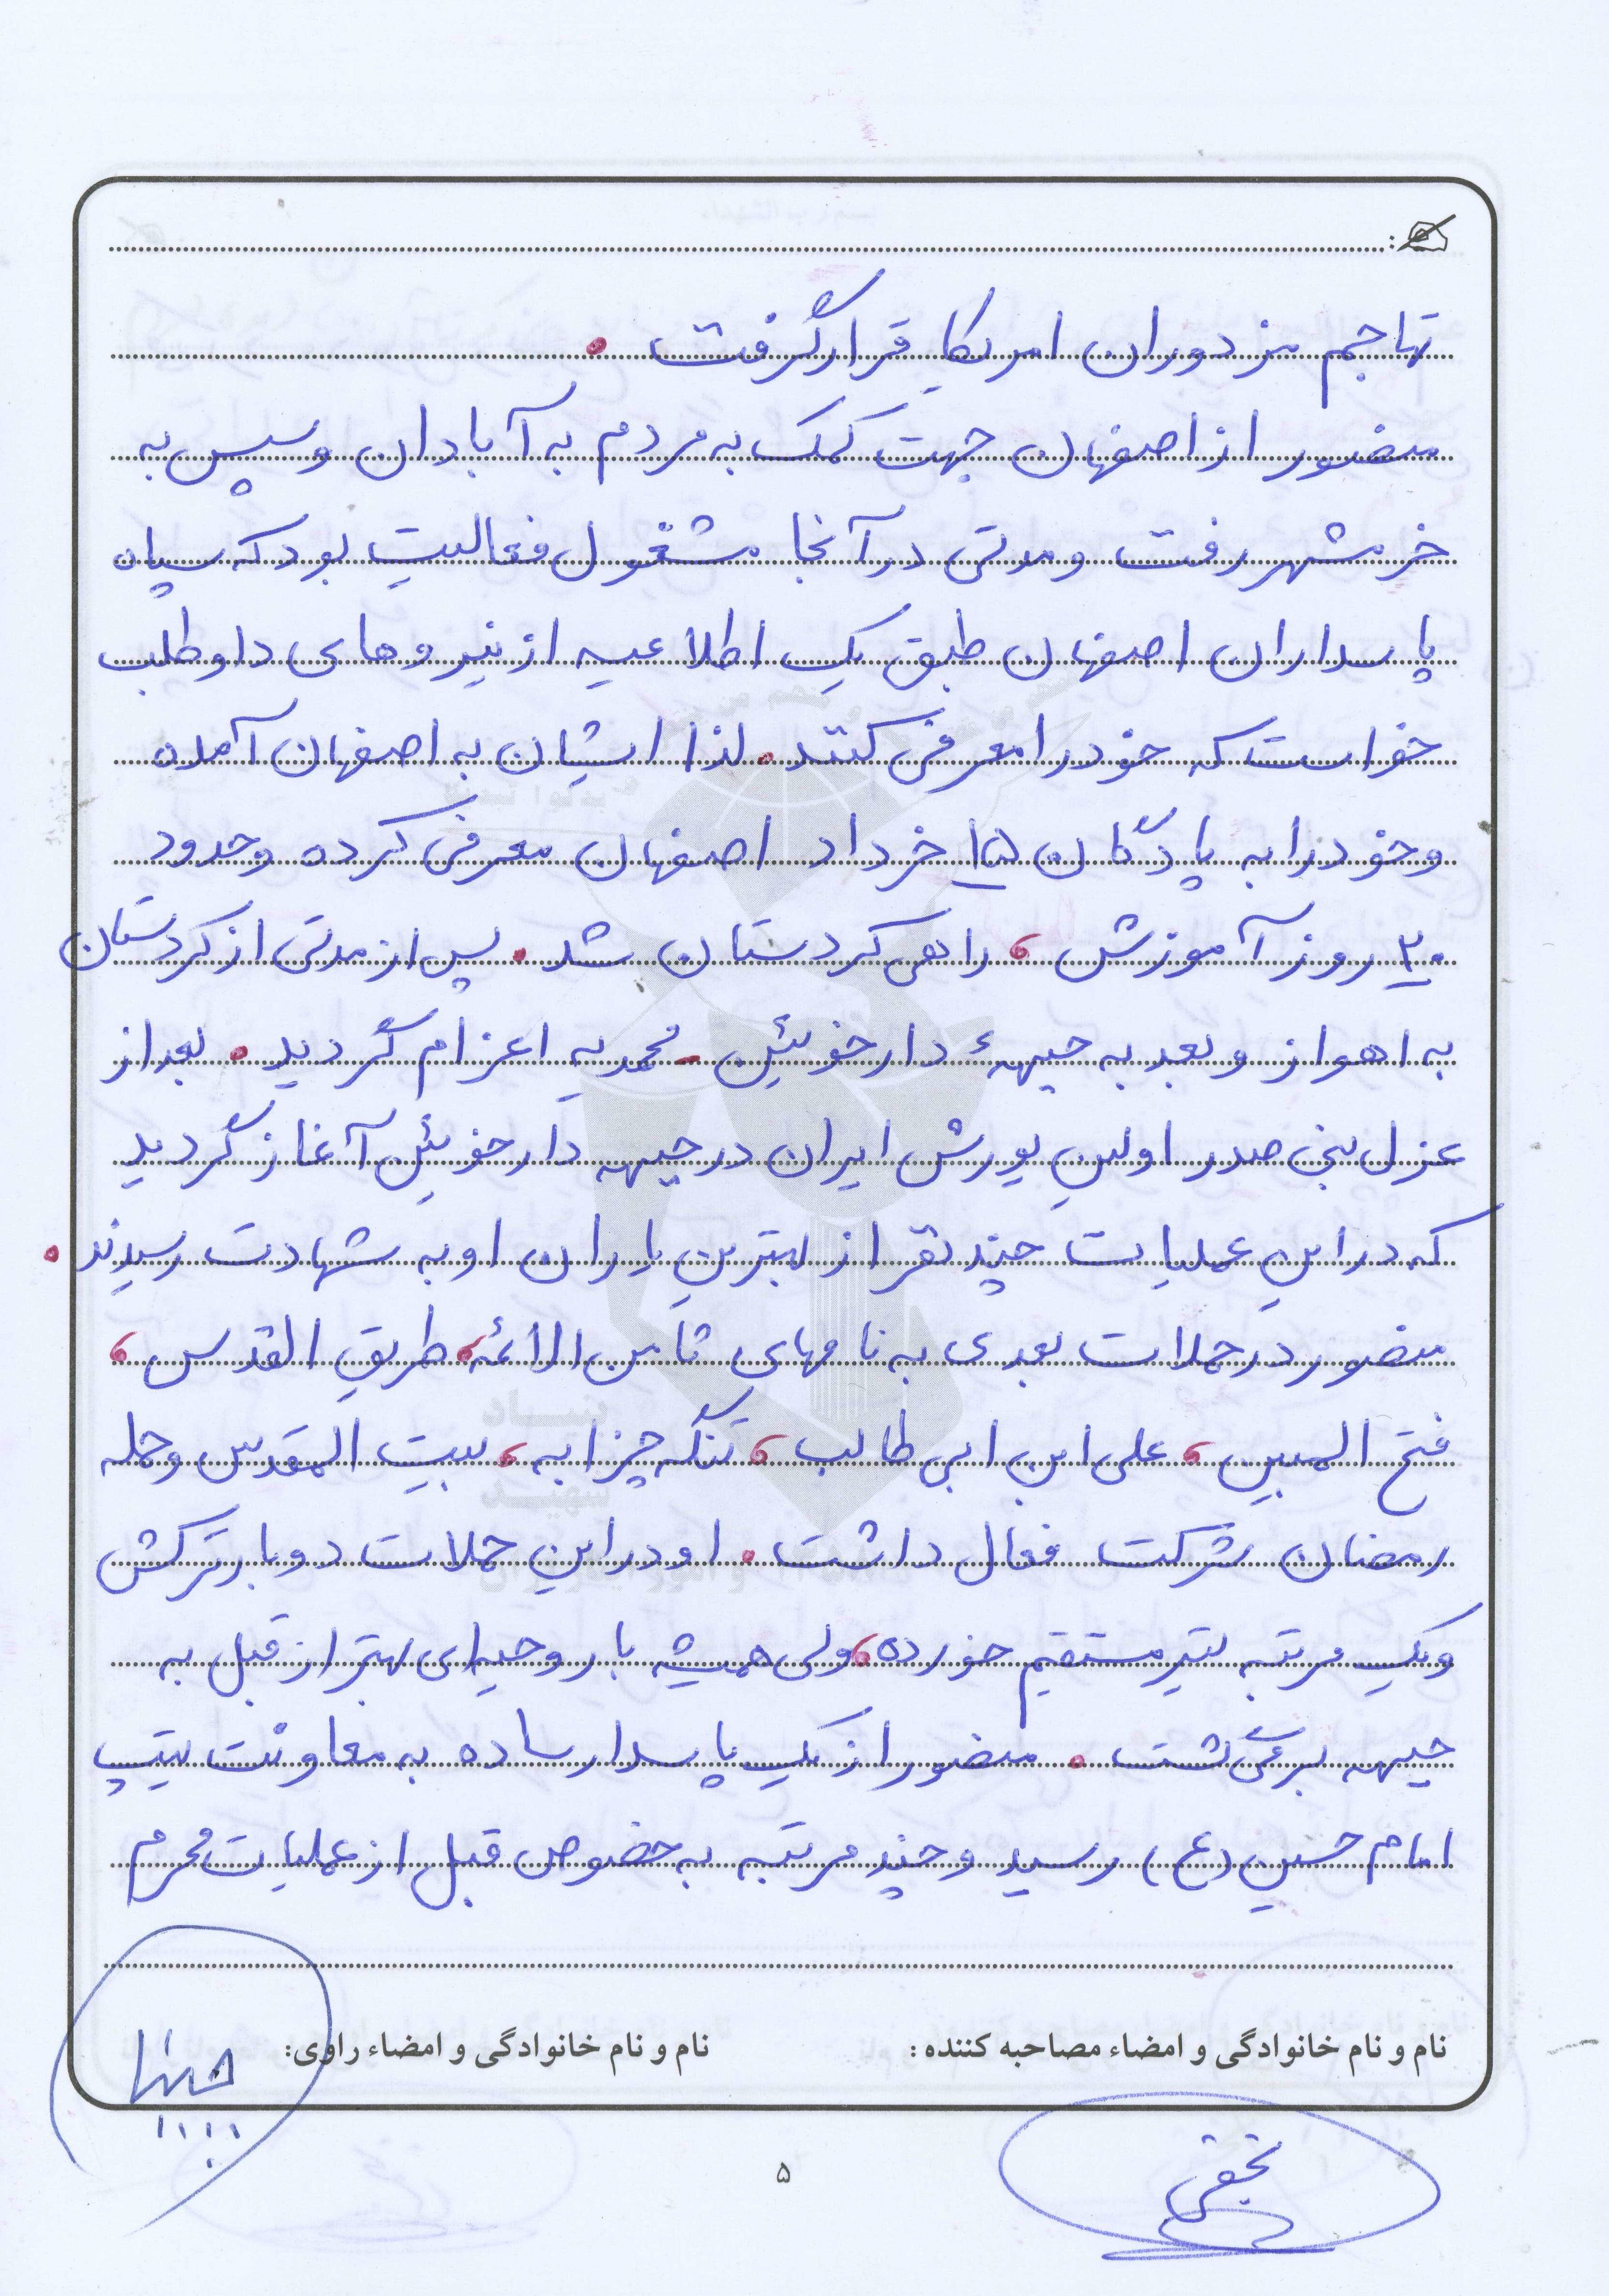 تهاجم مزدوران امریکا قرار گرفت .
منصور از اصفهان جهت کمک به مردم به آبادان و سپس به
خرمشهر رفت و مدتی در آنجا مشغول فعالیت بود که سپاه
پاسداران اصفهان طبق یک اطلاعیه از نیروهای داوطلب
خواست که خود را معرفی کنند . لذا ایشان به اصفهان آمده
و خود را به پادگان ۱۵ خرداد اصفهان معرفی کرده و حدود
۲۰ روز آموزش ، راهی کردستان شد . پس از مدتی از کردستان
به اهواز و بعد به جبههٔ دارخوئین - محمدیه اعزام گردید . بعد از
عزل بنی صدر اولین یورش ایران در جبهه دارخوئین آغاز گردید
که در این عملیات چند نفر از بهترین یاران او به شهادت رسیدند .
منصور در حملات بعدی به نامهای ثامن الائمه ، طریق القدس ،
فتح المبین ، علی ابن ابی طالب ، تنگه چزابه ، بیت المقدس و حمله
رمضان شرکت فعال داشت . او در این حملات دوبار ترکش
و یک مرتبه تیر مستقیم خورده ، ولی همیشه با روحیه‌ای بهتر از قبل به
جبهه برمی‌گشت . منصور از یک پاسدار ساده به معاونت تیپ
امام حسین (ع) رسید و چند مرتبه به خصوص قبل از عملیات محرم
نام و نام خانوادگی و امضاء مصاحبه کننده : نام و نام خانوادگی و امضاء راوی:
نجفی
۵
بنیاد
شهید
و امور ایثارگران